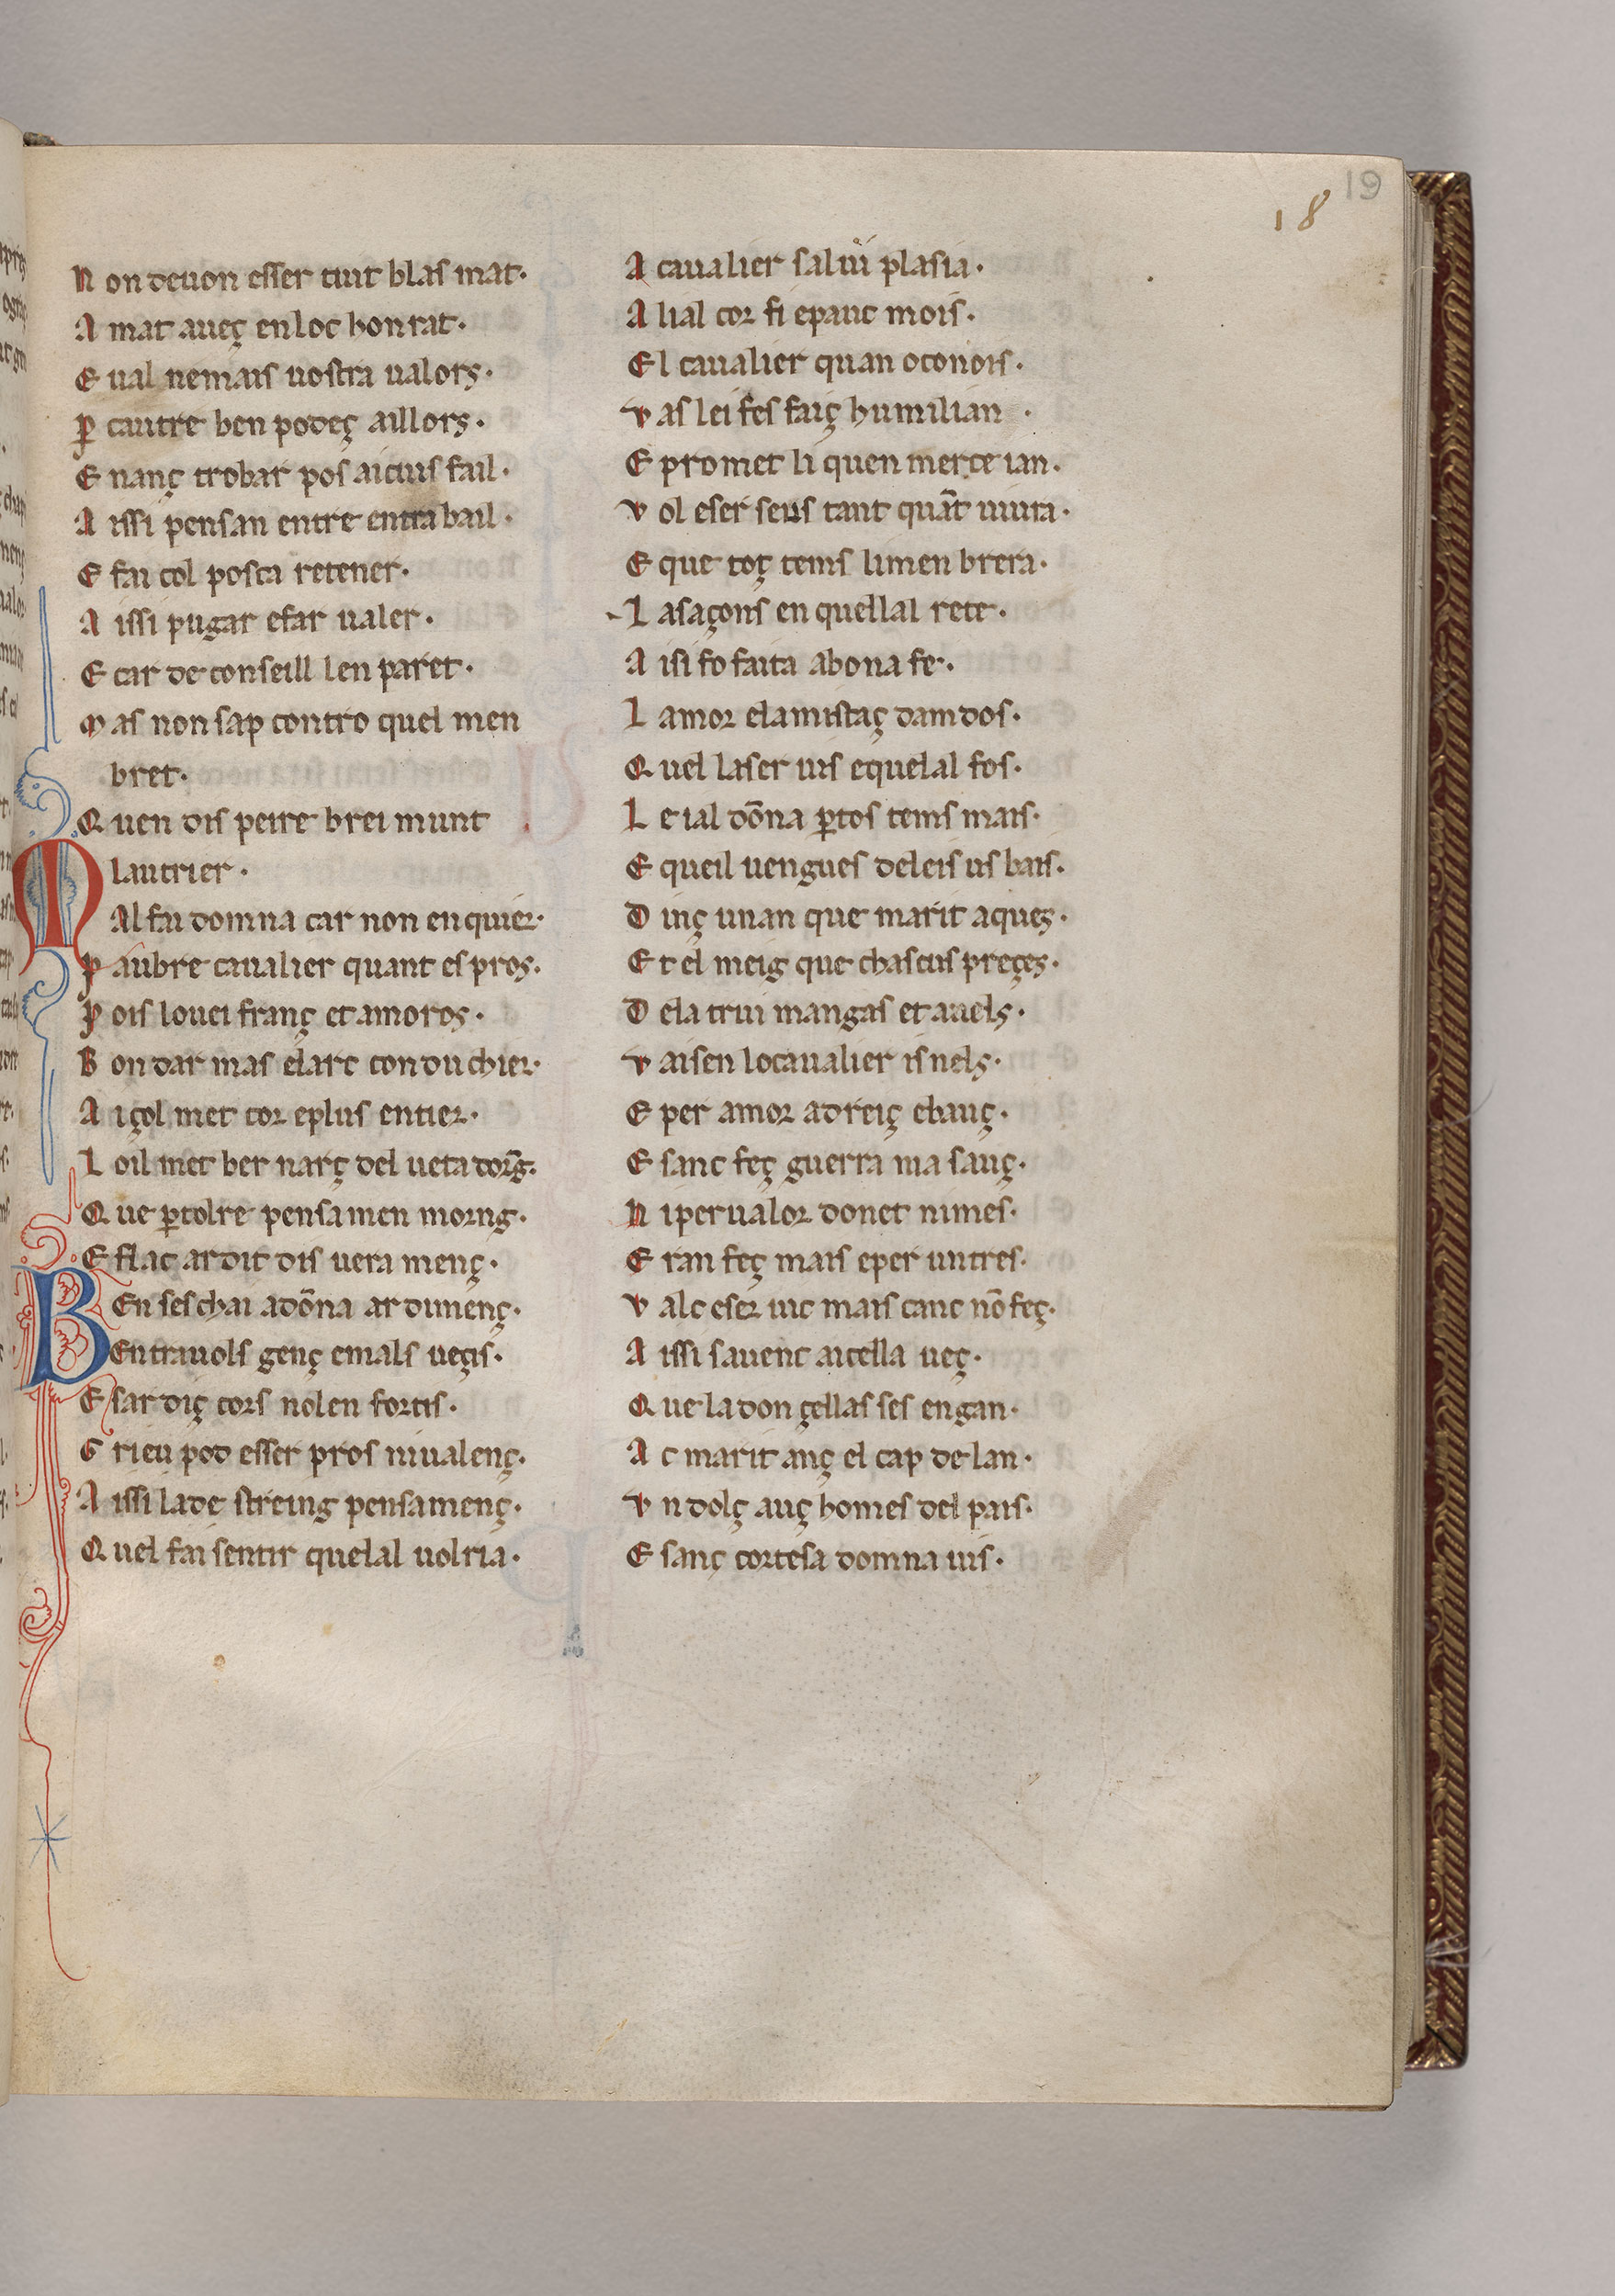 19
18
N on deuon esser tuit blasmat·
A mat aueç en loc honrat·
E ual nemais uostra ualors·
ꝑ cautre ben podeç aillors·
E nanç trobar pos aicius fail·
A issi pensan entre entrabail·
E fai col posca retener·
A issi pugar efar ualer·
E car de conseill len paret·
M as non sap contro quel men
bret·
Q uen dis peire breimunt
lautrier·
M Al fai domna car non enquier·
P aubre caualier quant es pros·
P ois louei franç et amoros·
B on dar mas elarc conduchier·
A içol met cor eplus entier·
L oil met bernarç del uetadorn̄·
Q ue ꝑtolre pensamen morng·
E flac ardit dis uera menç·
B En seschai adōna ardimenç·
Entrauols genç emals ueçis·
E sardiç cors nolen fortis·
G rieu pod esser pros niualenç·
A issi lade streing pensamenç·
Q uel fai sentir quelal uolria·
A caualier saluii plasia·
A lial cor fi epauc mois·
E l caualier quan oconois·
V as lei fes faiç humilian ·
E promet li quen merce ian·
V ol eser seus tant quāt uiura·
E que toç tems limenbrera·
L asaçons en quellal rete·
A isi fo faita abona fe·
L amor elamistaç damdos·
Q uel laser uis equelal fos·
L e ial dōna ꝑtos tems mais·
E queil uengues deleis us bais·
D inç unan que marit aques·
E t el meig que chascus preçes·
D ela trui mangas et anels·
V aisen locaualier isnels·
E per amor adreiç ebauç·
E sanc feç guerra ma sauç·
N iperualor donet nimes·
E ran feç mais eper untres·
V alc eser uic mais canc nō feç·
A issi sauenc aicella ueç·
Q ue la donçellas ses engan·
A c marit anç el cap de lan·
V n dolç auç homes del pais·
E sanç cortesa domna uis·